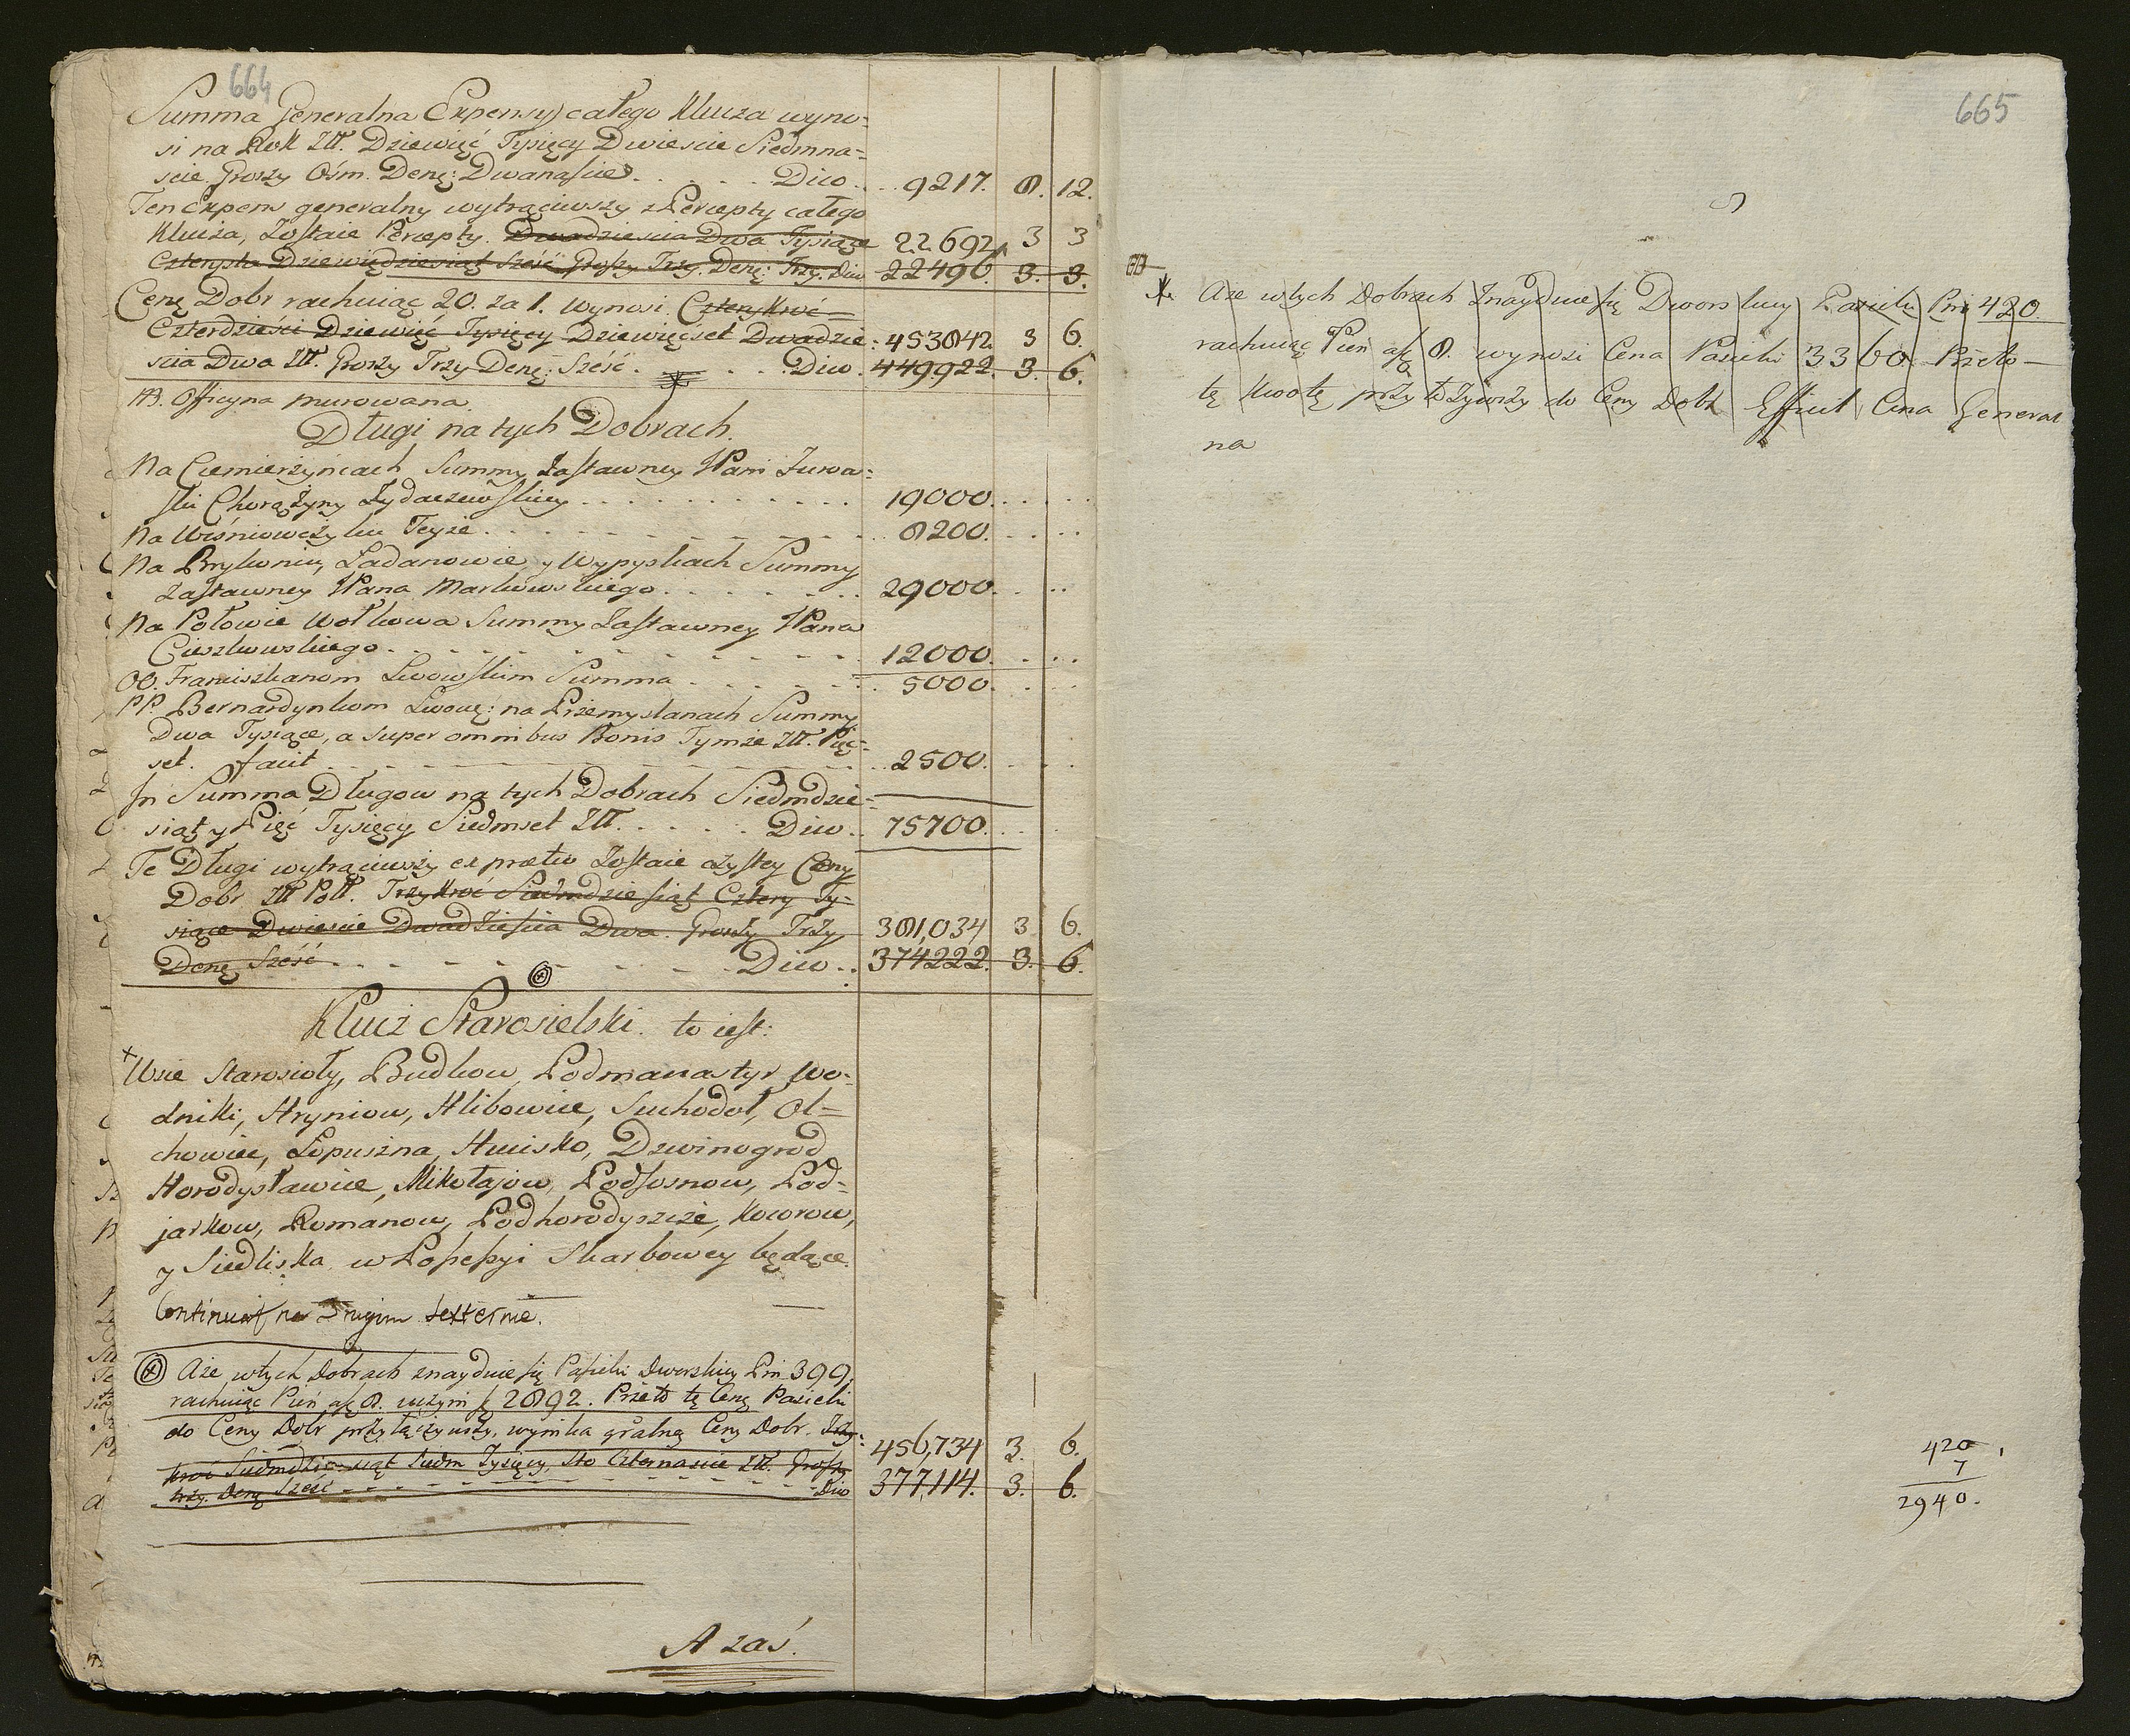 664
Summa Generalna Expensy całego Klucza wyno=
si na Rok Złł. Dziewięć Tysięcy Dwiescie Siedmna=
scie Groszy Ośm. Denę: Dwanaście . . . . . Dico . . . 9217. 8. 12.
Ten Expens generalny wytrąciwszy z Percepty całego
Klucza, Zostaie Percepty. Dwadziescia Dwa Tysiące 22692 3 3
Czterysta Dziewięćdziesiąt Sześć Groszy Trzy. Denę: Trzy. Dico 22496. 3. 3.
Cenę Dobr rachuiąc 20. za 1. wynosi Czterykroć
Czterdzieści Dziewięć Tysięcy Dziewięćset Dwadzie: 453842. 3 6.
scia Dwa Złł. Groszy Trzy Denę: Sześć . . . . Dico. 449922. 3. 6.
NB. Officyna murowana.
Długi na tych Dobrach.
Na Ciemierzyńcach Summy Zastawney JPani Zurow=
ski Chorążyny Zydaczewskiey . . . . . 19000. . . .
Na Wiśniowczyku Teyże . . . . . 8200. . . .
Na Brykoniu, Ladanowie, y Wypyskach Summy
Zastawney JPana Markowskiego . . . . . 29000. . . .
Na Połowie Wołkowa Summy Zastawney JPana
Cieszkowskiego . . . . . 12000. . . .
OO. Franciszkanom Lwowskim Summa . . . . . 5000. . . .
PP. Bernardynkom Lwowę: na Przemyslanach Summy
Dwa Tysiące, a super omnibus Bonis Tymże Złł. Pięć=
set. facit . . . . . 2500. . . .
Jn Summa Długow na tych Dobrach Siedmdzie=
siąt y Pięć Tysięcy Siedmset Złł. . . . . Dico . . 75700. . . .
Te Długi wytrąciwszy ex praetio Zostaie czystey Ceny
Dobr Złł Poll. Trzykroć Siedmdziesiąt Cztery Ty=
siące Dwiescie Dwadziescia Dwa. Groszy Trzy 381,034 3 6.
Denę Sześć . . . . . Dico . . 374222. 3. 6.
Klucz Starosielski. to iest:
+ Wsie Starosioły, Budkow, Podmanastyr, Wo=
dniki, Hryniow, Hlibowice, Suchodoł, Ol=
chowiec, Łopuszna, Huisko, Dzwinogrod
Horodysławice, Mikołajow, Podsosnow, Pod=
jarkow, Romanow, Podhorodyszcze, Kocorow,
y Siedliska w Possessyi Skarbowey będące.
Continuat na Drugim Sexternie.
Aże wtych Dobrach znayduie się Pasieki Dworskiey Pni 399.
rachuiąc Pień asę 8. uczyni ƒ 2892. Przeto tę Cenę Pasieki
do Ceny Dobr przyłączywszy, wynika gralna Ceny Dobr. Trzy: 456,734 3. 6.
kroć Siedmdziesiąt Siedm Tysięcy, Sto Czternascie Złł. Groszy
trzy. Denę Sześć . . . . . Dico 377,114. 3. 6.
A zaś.
665
Aże wtych Dobrach Znayduie się Dworskiey Pasieki Pni 420
rachuiąc Pień asę 8. wynosi Cena Pasieki 3360. Przeto
tę Kwotę przyłożywszy do Ceny Dobr Efficit Cena General
na
420
7
2940.